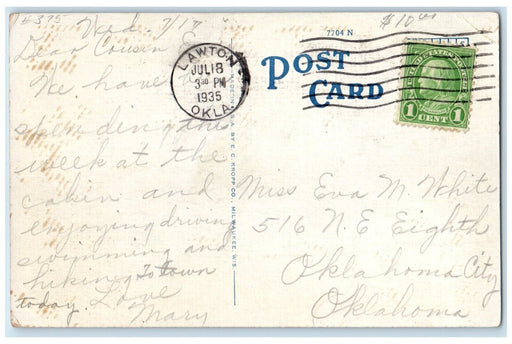 E375
$10.00
7704 N
Wed. 7/17
Dear Cousin E
We have
spending the
week at the
cabin and
enjoying driving
swimming and
hiking. To town
today. Love
Mary
LAWTON
JUL 18
3 30 PM
1935
OKLA.
POST
CARD
UNITED STATES POSTAGE
1 CENT 1
MADE IN U.S.A. BY E. C. KROPP CO., MILWAUKEE, WIS.
Miss Eva M. White
516 N. E Eighth
Oklahoma City
Oklahoma